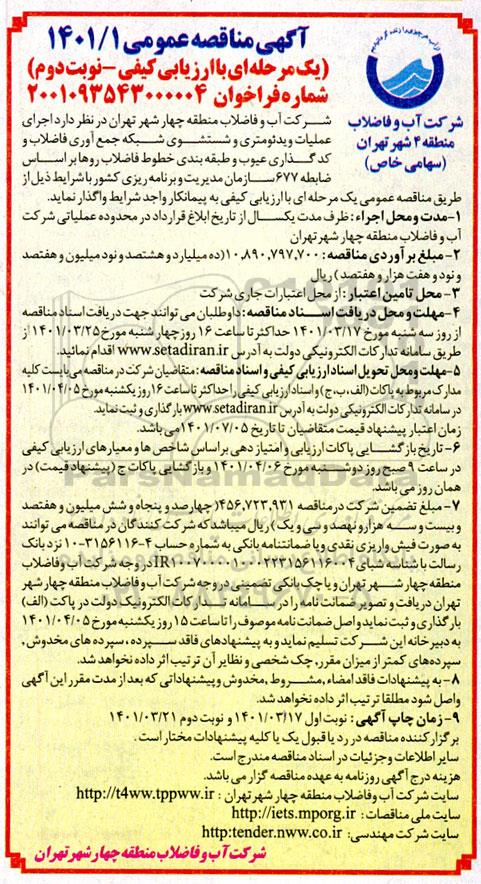 آگهی مناقصه عمومی ۱۴۰۱/۱
(یک مرحله‌ای با ارزیابی کیفی - نوبت دوم)
شماره فراخوان ۲۰۰۱۰۹۳۵۴۳۰۰۰۰۰۴
شرکت آب و فاضلاب
منطقه ۴ شهر تهران
(سهامی خاص)
شرکت آب و فاضلاب منطقه چهار شهر تهران در نظر دارد اجرای
عملیات ویدئومتری و شستشوی شبکه جمع آوری فاضلاب و
کدگذاری عیوب و طبقه بندی خطوط فاضلاب روها بر اساس
ضابطه ۶۷۷ سازمان مدیریت و برنامه ریزی کشور با شرایط ذیل از
طریق مناقصه عمومی یک مرحله ای با ارزیابی کیفی به پیمانکار واجد شرایط واگذار نماید.
۱- مدت و محل اجراء : ظرف مدت یکسال از تاریخ ابلاغ قرارداد در محدوده عملیاتی شرکت
آب و فاضلاب منطقه چهار شهر تهران
۲- مبلغ برآوردی مناقصه : ۱۰,۸۹۰,۷۹۷,۷۰۰ (ده میلیارد و هشتصد و نود میلیون و هفتصد
و نود و هفت هزار و هفتصد) ریال
۳- محل تامین اعتبار : از محل اعتبارات جاری شرکت
۴- مهلت و محل دریافت اسناد مناقصه : داوطلبان می توانند جهت دریافت اسناد مناقصه
از روز سه شنبه مورخ ۱۴۰۱/۰۳/۱۷ حداکثر تا ساعت ۱۶ روز چهار شنبه مورخ ۱۴۰۱/۰۳/۲۵ از
طریق سامانه تدارکات الکترونیکی دولت به آدرس www.setadiran.ir اقدام نمائید.
۵- مهلت و محل تحویل اسناد ارزیابی کیفی و اسناد مناقصه : متقاضیان شرکت در مناقصه می بایست کلیه
مدارک مربوط به پاکات (الف، ب، ج) و اسناد ارزیابی کیفی را حداکثر تا ساعت ۱۶ روز یکشنبه مورخ ۱۴۰۱/۰۴/۰۵
در سامانه تدارکات الکترونیکی دولت به آدرس www.setadiran.ir بارگذاری و ثبت نماید.
زمان اعتبار پیشنهاد قیمت متقاضیان تا تاریخ ۱۴۰۱/۰۷/۰۵ می باشد.
۶- تاریخ بازگشایی پاکات ارزیابی و امتیاز دهی بر اساس شاخص ها و معیارهای ارزیابی کیفی
در ساعت ۹ صبح روز دوشنبه مورخ ۱۴۰۱/۰۴/۰۶ و بازگشایی پاکات ج (پیشنهاد قیمت) در
همان روز می باشد.
۷- مبلغ تضمین شرکت در مناقصه ۴۵۶,۷۲۳,۹۳۱ (چهارصد و پنجاه و شش میلیون و هفتصد
و بیست و سه هزار و نهصد و سی و یک) ریال میباشد که شرکت کنندگان در مناقصه می توانند
به صورت فیش واریزی نقدی و یا ضمانتنامه بانکی به شماره حساب ۴-۳۱۵۶۱۱۶-۱۰ نزد بانک
رسالت با شناسه شبای در وجه شرکت آب و فاضلاب
منطقه چهار شهر تهران و یا چک بانکی تضمینی در وجه شرکت آب و فاضلاب منطقه چهار شهر
تهران دریافت و تصویر ضمانت نامه را در سامانه تدارکات الکترونیک دولت در پاکت (الف)
بارگذاری و ثبت نماید و اصل ضمانت نامه موصوف را تا ساعت ۱۵ روز یکشنبه مورخ ۱۴۰۱/۰۴/۰۵
به دبیرخانه این شرکت تسلیم نماید و به پیشنهادهای فاقد سپرده ، سپرده های مخدوش ,
سپرده‌های کمتر از میزان مقرر, چک شخصی و نظایر آن ترتیب اثر داده نخواهد شد.
۸- به پیشنهادات فاقد امضاء ,مشروط ,مخدوش و پیشنهاداتی که بعد از مدت مقرر این آگهی
واصل شود مطلقا ترتیب اثر داده نخواهد شد.
۹- زمان چاپ آگهی : نوبت اول ۱۴۰۱/۰۳/۱۷ و نوبت دوم ۱۴۰۱/۰۳/۲۱
برگزارکننده مناقصه در رد یا قبول یک یا کلیه پیشنهادات مختار است .
سایر اطلاعات و جزئیات در اسناد مناقصه مندرج است.
هزینه درج آگهی روزنامه به عهده مناقصه گزار می باشد.
سایت شرکت آب و فاضلاب منطقه چهار شهر تهران : http://t4ww.tppww.ir
سایت ملی مناقصات : http://iets.mporg.ir
سایت شرکت مهندسی: http:tender.nww.co.ir
شرکت آب و فاضلاب منطقه چهار شهر تهران